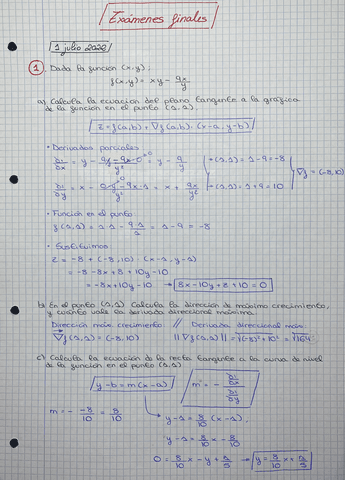 Exámenes finales
1 julio 2022
1. Dada la función (x,y),
f(x,y) = xy - 9x/y
a) Calcula la ecuación del plano tangente a la gráfica
de la función en el punto (1,1).
z = f(a,b) + ∇f(a,b) · (x-a, y-b)
• Derivadas parciales
∂f/∂x = y - 9y-9x·0/y² = y - 9/y → (1,1) = 1-9 = -8
∂f/∂y = x - 0·y-9x·1/y² = x + 9x/y² → (1,1) = 1+9 = 10
∇f = (-8,10)
• Función en el punto
f(1,1) = 1·1 - 9·1/1 = 1-9 = -8
• Sustituimos
z = -8 + (-8,10) · (x-1, y-1)
= -8 -8x+8 + 10y-10
= -8x+10y-10 → 8x-10y+z+10 = 0
b) En el punto (1,1) Calcula la dirección de máximo crecimiento,
y cuánto vale la derivada direccional máxima.
Dirección máx. crecimiento // Derivada direccional máx.
∇f(1,1) = (-8,10) || ∇f(1,1) || = √(-8)²+10² = √164
c) Calcula la ecuación de la recta tangente a la curva de nivel
de la función en el punto (1,1)
y-b = m(x-a)
m = - ∂f/∂x / ∂f/∂y
m = - -8/10 = 8/10
y-1 = 8/10 (x-1),
y-1 = 8/10 x - 8/10
0 = 8/10 x - y + 1/5 → y = 8/10 x + 1/5